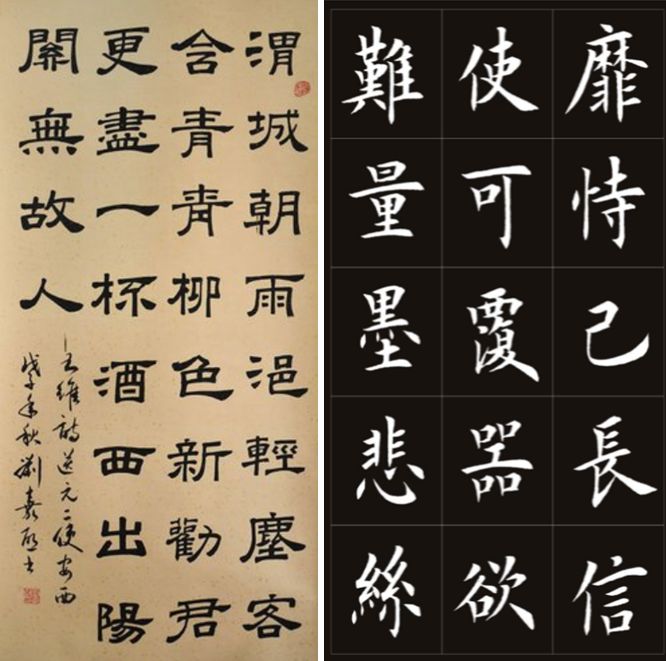 渭城朝雨浥輕塵客
舍青青柳色新勸君
更盡一杯酒西出陽
關無故人
王維詩送元二使安西
戊子年秋劉嘉書
靡恃己長信
使可覆器欲
難量墨悲絲